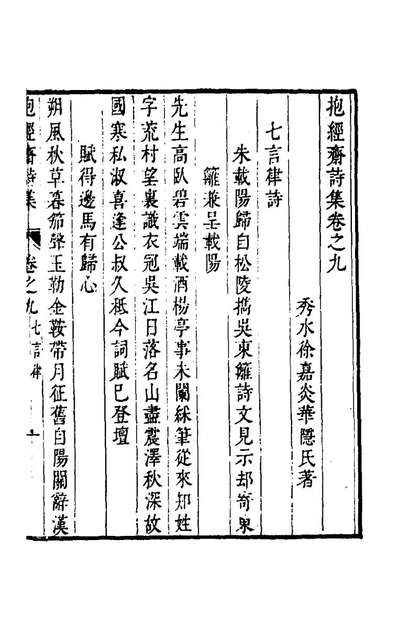 抱經齋詩集卷之九
秀水徐嘉炎華隱氏著
七言律詩
朱載陽歸自松陵擕吳東籬詩文見示却寄東
籬兼呈載陽
先生高臥碧雲端載酒楊亭事未闌綵筆從來知姓
字荒村望裏識衣冠吳江日落名山盡震澤秋深故
國寒私淑喜逢公叔久秪今詞賦已登壇
賦得邊馬有歸心
朔風秋草暮笳聲玉勒金鞍帶月征舊自陽關辭漢
抱經齋詩集
卷之九七言律
一